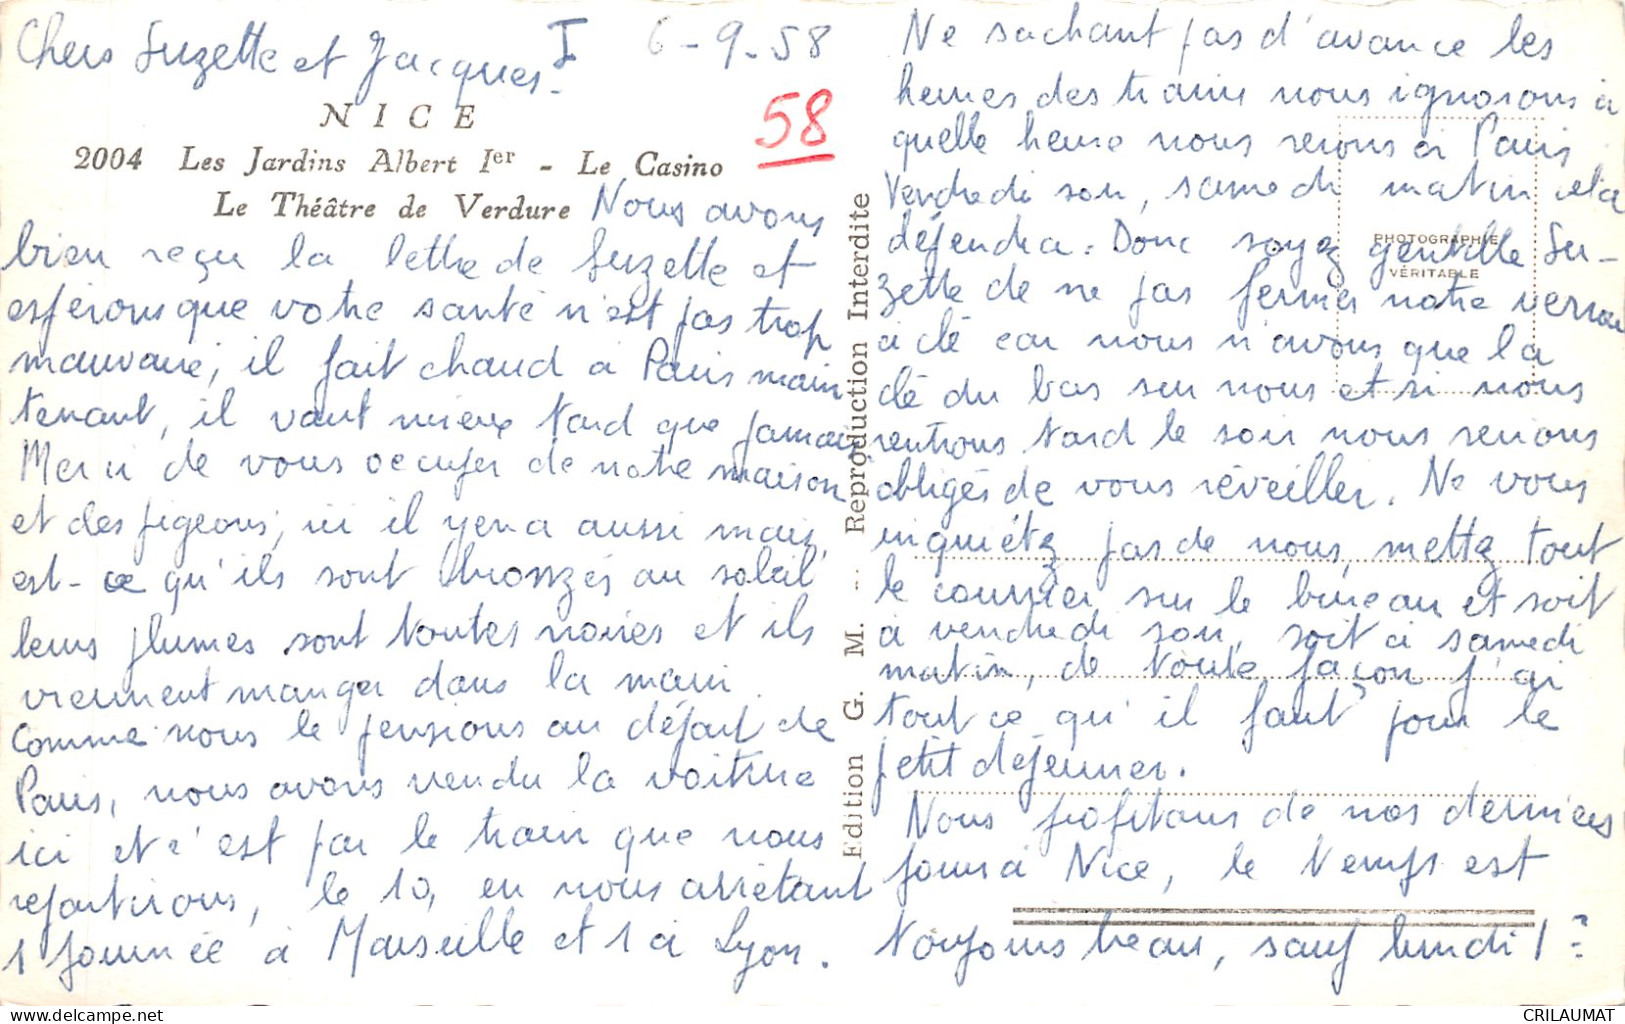 Chers Suzette et Jacques. I 6-9-58
58
NICE
2004 Les Jardins Albert Ier - Le Casino
Le Théâtre de Verdure
Nous avons
bien reçu la lettre de Suzette et
espérons que votre santé n'est pas trop
mauvaise, il fait chaud à Paris main
tenant, il vaut mieux tard que jamais.
Merci de vous occuper de notre maison
et des pigeons, ici il y en a aussi mais,
est-ce qu'ils sont bronzés au soleil
leurs plumes sont toutes noires et ils
viennent manger dans la main.
Comme nous le pensions au départ de
Paris, nous avons vendu la voiture
ici et c'est par le train que nous
repartirons, le 10, en nous arrêtant
1 journée à Marseille et 1 à Lyon.
Edition G. M. -- Reproduction Interdite
PHOTOGRAPHIE
VÉRITABLE
Ne sachant pas d'avance les
heures des trains nous ignorons à
quelle heure nous serons à Paris,
Vendredi soir, samedi matin cela
dépendra. Donc soyez gentille Su-
zette de ne pas fermer notre verrou
à clé car nous n'avons que la
clé du bas sur nous et si nous
rentrions tard le soir nous serions
obligés de vous réveiller. Ne vous
inquiétez pas de nous, mettez tout
le courrier sur le bureau et soit
à vendredi soir, soit à samedi
matin, de toute façon j'ai
tout ce qu'il faut pour le
petit déjeuner.
Nous profitons de nos derniers
jours à Nice, le temps est
toujours beau, sauf lundi 1?
CRILAUMAT